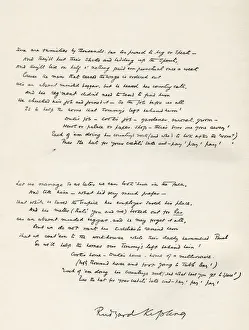 There are families by thousands far too proud to beg or speak –
And they'll put their sticks and bedding up the spout,
And they'll live on half o' nothing paid 'em punctual once a week
Cause the man that earned the wage is ordered out
He's an absent minded beggar but he heard his country's call,
And his reg'ment didn't need to send to find him:
He chucked his job and joined it – So the job before us all
Is to help the home that Tommy's left behind him!
Duke's job – cook's job – gardener, baronet, groom –
Mews or palace or paper-shop – there's some one gone away!
Each of 'em doing his country's work (and who's to look after the room?)
Pass the hat for your credit's sake and – pay! pay! pay!
Let us manage so as later we can look him in the face,
And tell him – what he'd very much prefer –
That while he saved the Empire his employer saved his place,
And his mates (that's you and me) looked out for her
He's an absent minded beggar and he may forget it all,
But we do not want his kiddies to remind him
That we sent 'em to the workhouse while their daddy hammered Paul
So we'll help the homes our Tommy's left behind him!
Cook's home – Duke's home – home of a millionaire
(Fifty thousand horse and foot going to Table Bay!)
Each of 'em doing his country's work (and what have you got to spare?)
Pass the hat for your credit's sake and pay! pay! pay!
Rudyard Kipling